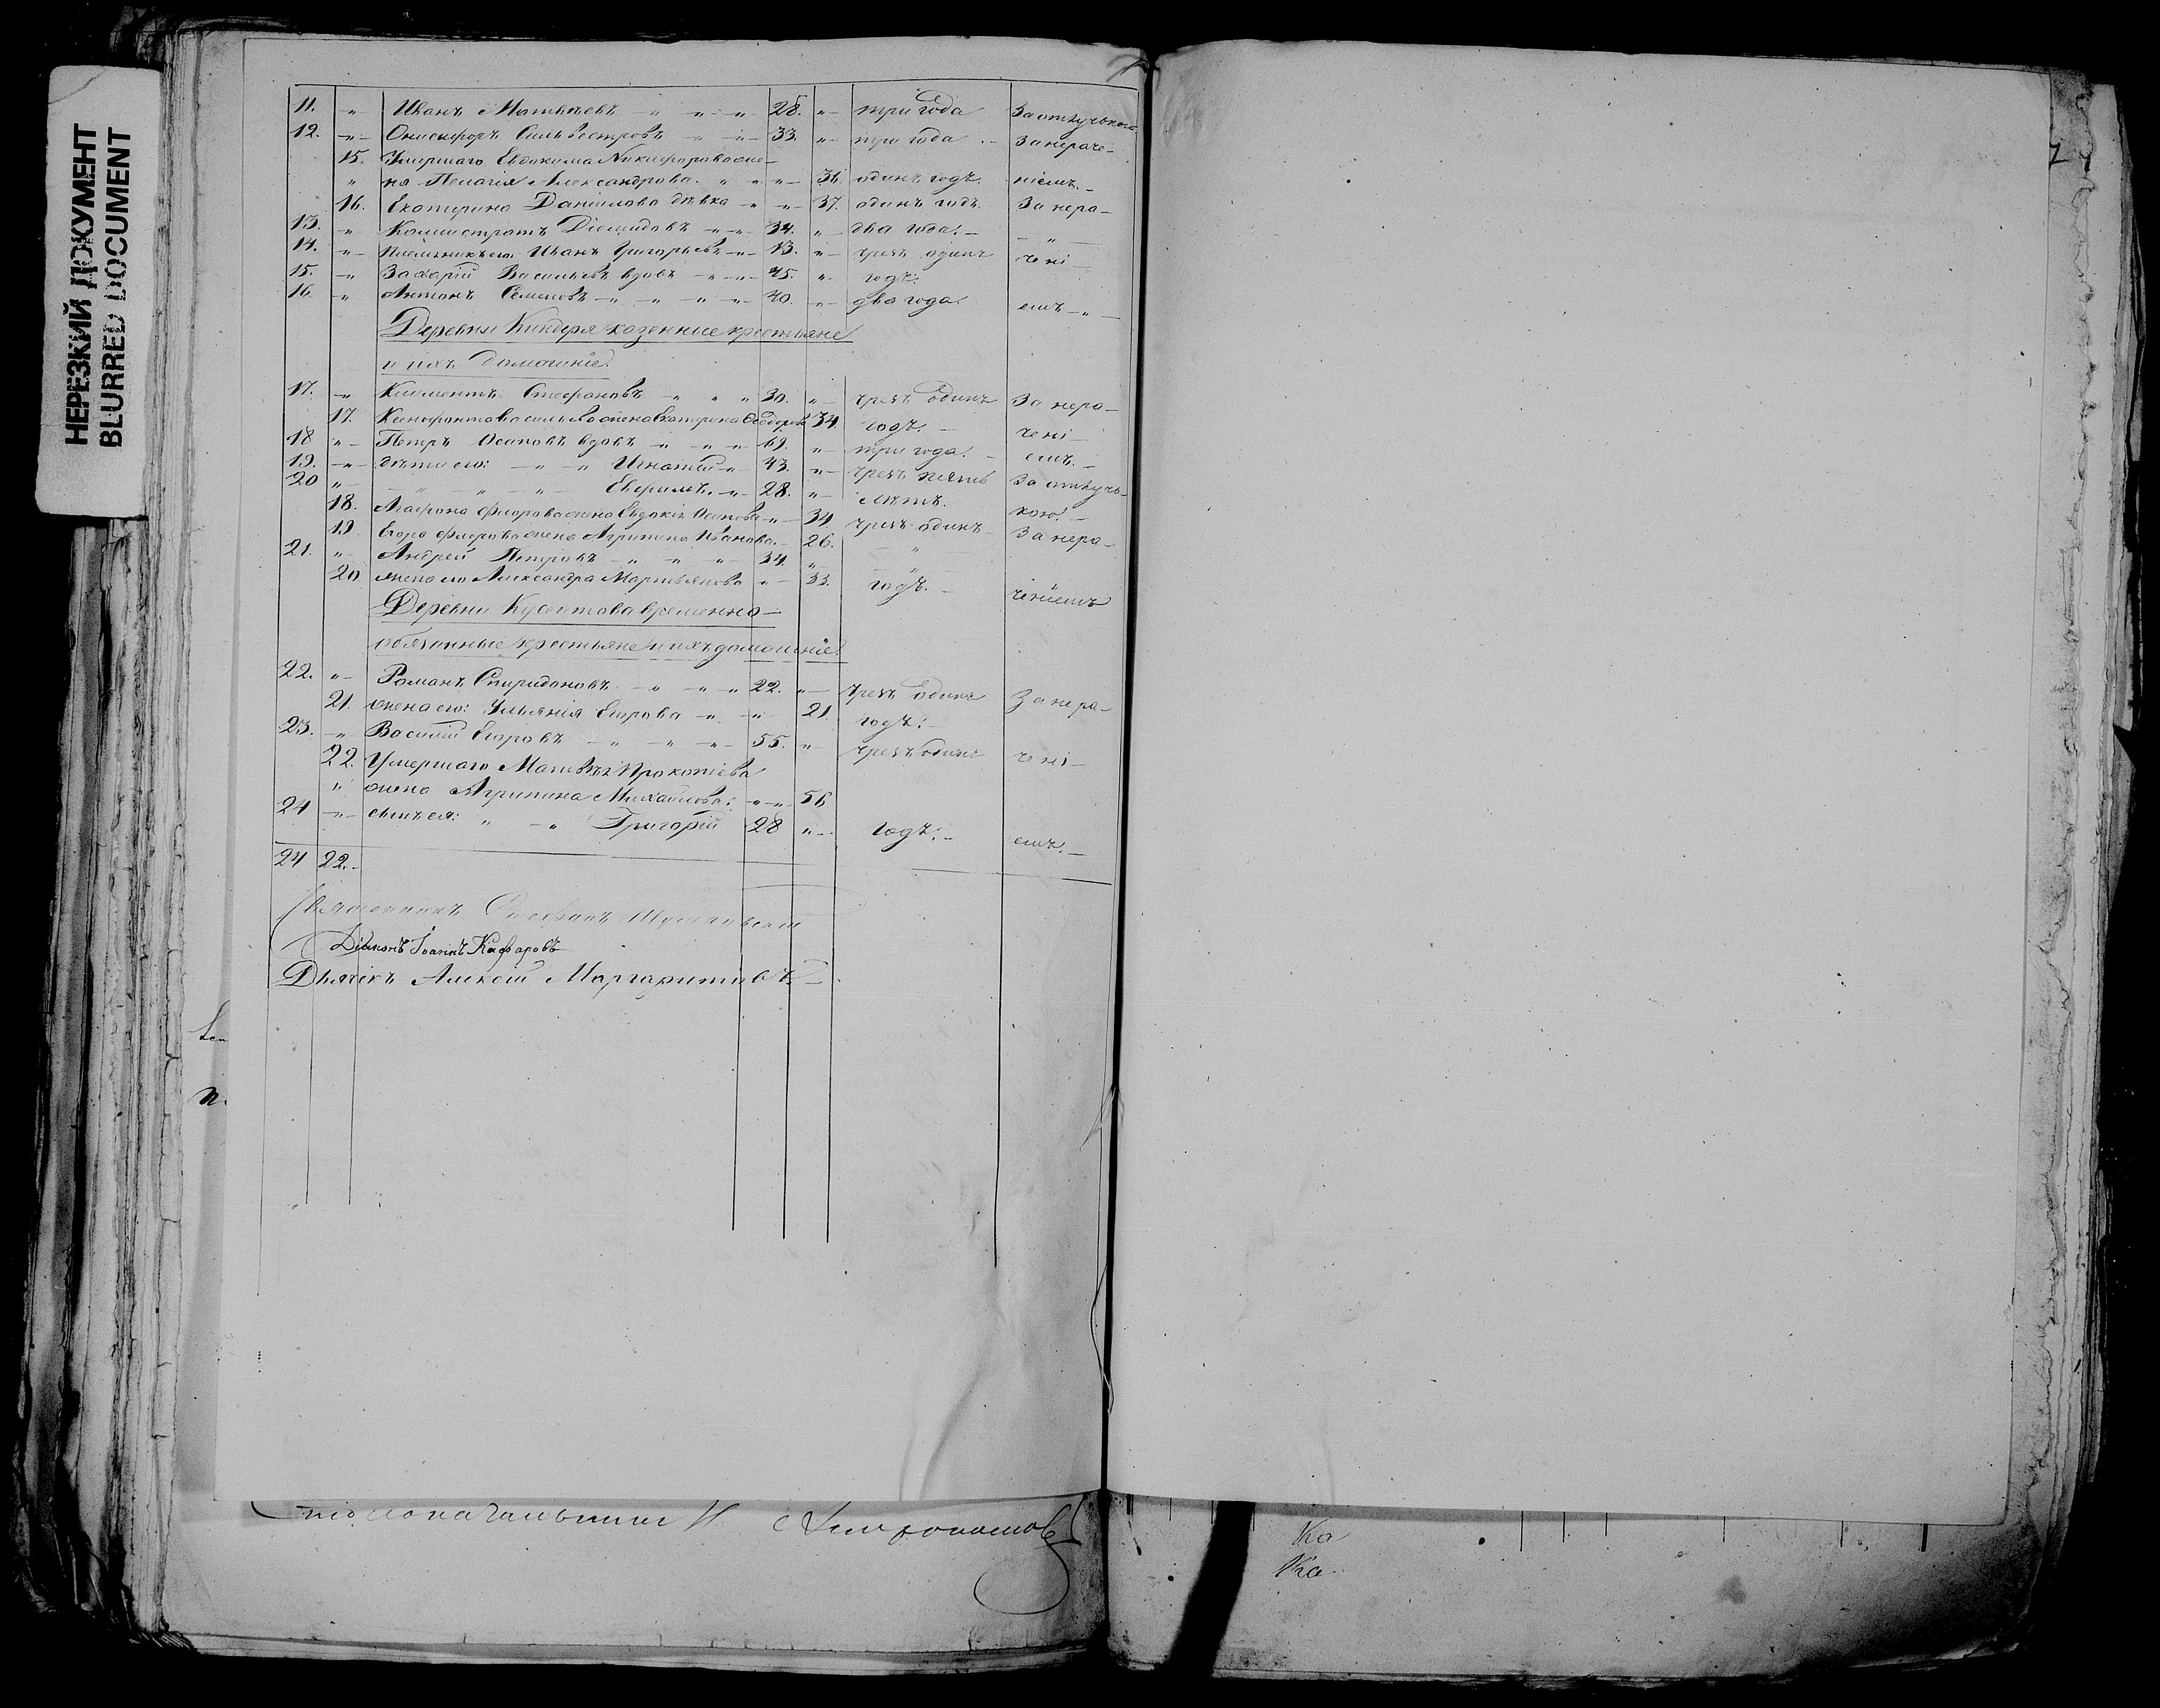 НЕРЕЗКИЙ ДОКУМЕНТ
BLURRED DOCUMENT
11. " Иванъ Матвѣевъ " " " 28. " три года За отлучкою.
12. " Онисифоръ Сильвестровъ " " 33. " три года За нераче-
15. Умершаго Евдокима Никифорова же-
" на Пелагія Александрова " " " 36. одинъ годъ. ніемъ.
16. Екатерина Даніилова дѣвка " " 37. одинъ годъ. За нера-
13. " Каллистратъ Діомидовъ " " 34. " два года. "
14. " Иванъ Григорьевъ " 13. " чрезъ одинъ чені-
15. " Захарій Васильевъ вдовъ " " 45. " годъ.
16. " Антонъ Семеновъ " " " " 40. " два года. емъ "
Деревни Киндеря казенные крестьяне
и ихъ домашніе.
17. " Климентъ Стефановъ " " " 30. " чрезъ одинъ За нера-
17. Ксенофонта Васильева жена Екатерина Ѳеодорова 34. годъ. чені-
18 " Петръ Осиповъ вдовъ " " " 69. " три года. емъ.
19. " дѣти его: " " Игнатій " 43. " чрезъ пять За отлуч-
20 " " " " Евфимъ. " 28. " лѣтъ. кою.
18. Агафона Флорова жена Евдокія Осипова " 34. чрезъ одинъ За нера-
19. Егора Флорова жена Агрипина Иванова. 26. "
21. " Андрей Петровъ " " " 34. " "
20 жена его Александра Мартьянова " 33. годъ. ченіемъ
Деревни Кусеитова временно-
обязанные крестьяне и ихъ домашніе.
22. " Романъ Спиридоновъ " " " 22. " чрезъ одинъ За нера-
21. жена его: Ульянія Егорова " " 21 годъ.
23. " Василій Егоровъ " " " 55. " чрезъ одинъ чені-
22. Умершаго Матвѣя Прокопіева
" жена Агрипина Михайлова: " " 56
24 " сынъ ея: " " Григорій 28 " годъ. емъ.
24 22.
Священникъ Стефанъ
Діаконъ Іоаннъ Кафаровъ
Дьячекъ Алексій Маргаритовъ
7
Ка
Ка